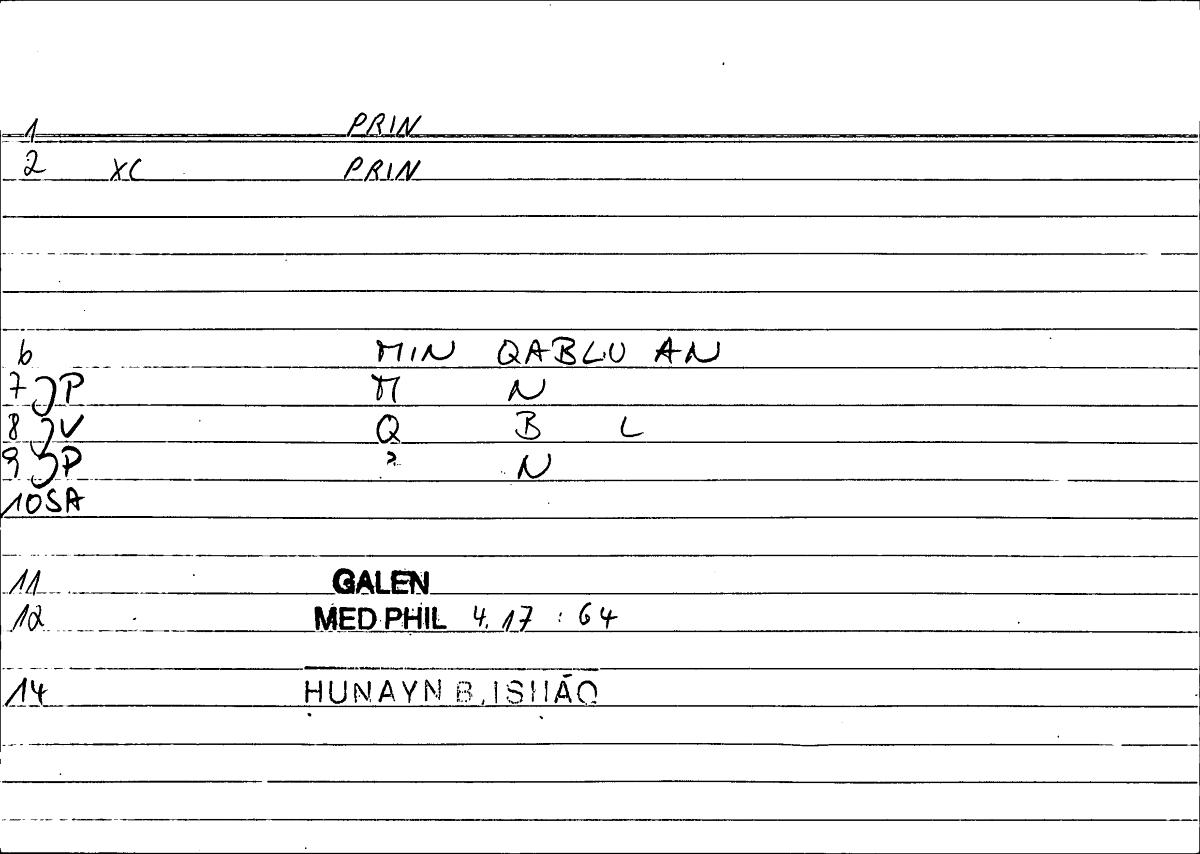 1 PRIN
2 XC PRIN
6 MIN QABLU AN
7 JP M N
8 JV Q B L
9 JP ʾ N
10 SA
11 GALEN
12 MED PHIL 4.17 : 64
14 ḤUNAYN B. ISḤĀQ